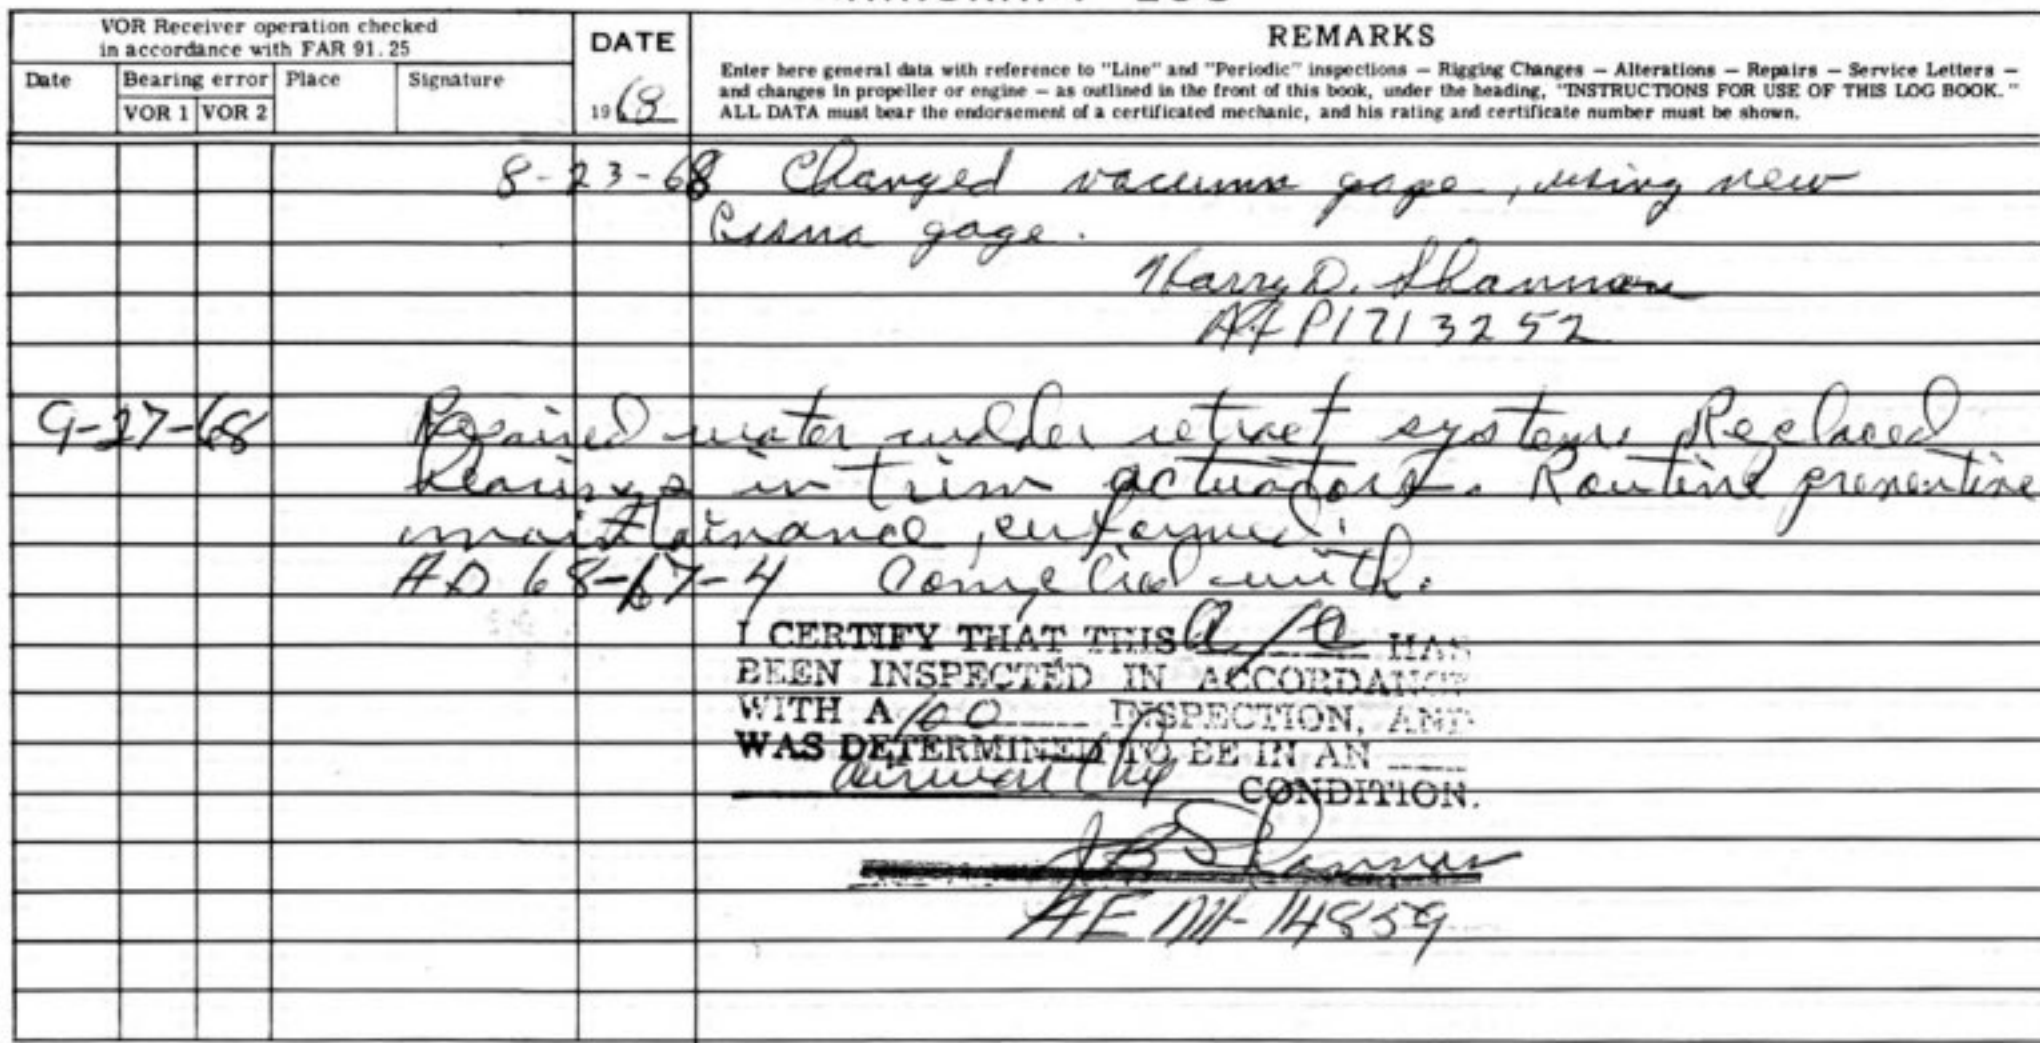 VOR Receiver operation checked
in accordance with FAR 91.25
DATE
REMARKS
Date
Bearing error
Place
Signature
VOR 1 VOR 2
1968
Enter here general data with reference to "Line" and "Periodic" inspections — Rigging Changes — Alterations — Repairs — Service Letters —
and changes in propeller or engine — as outlined in the front of this book, under the heading, "INSTRUCTIONS FOR USE OF THIS LOG BOOK."
ALL DATA must bear the endorsement of a certificated mechanic, and his rating and certificate number must be shown.
8-23-68 Changed vacuum gage, using new
gage.
Harry D. Shannon
A&P 1713252
9-27-68 Repaired water rudder retract system. Replaced
bearings in trim actuators. Routine preventive
performed.
AD 68-17-4 Complied with.
I CERTIFY THAT THIS A/C HAS
BEEN INSPECTED IN ACCORDANCE
WITH A 100 INSPECTION, AND
WAS DETERMINED TO BE IN AN
airworthy CONDITION.
Shannon
14859